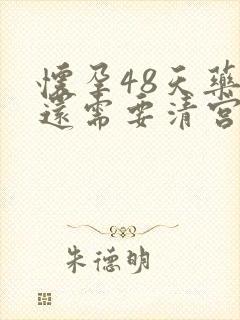 怀孕48天药
还需要清宫
朱德明